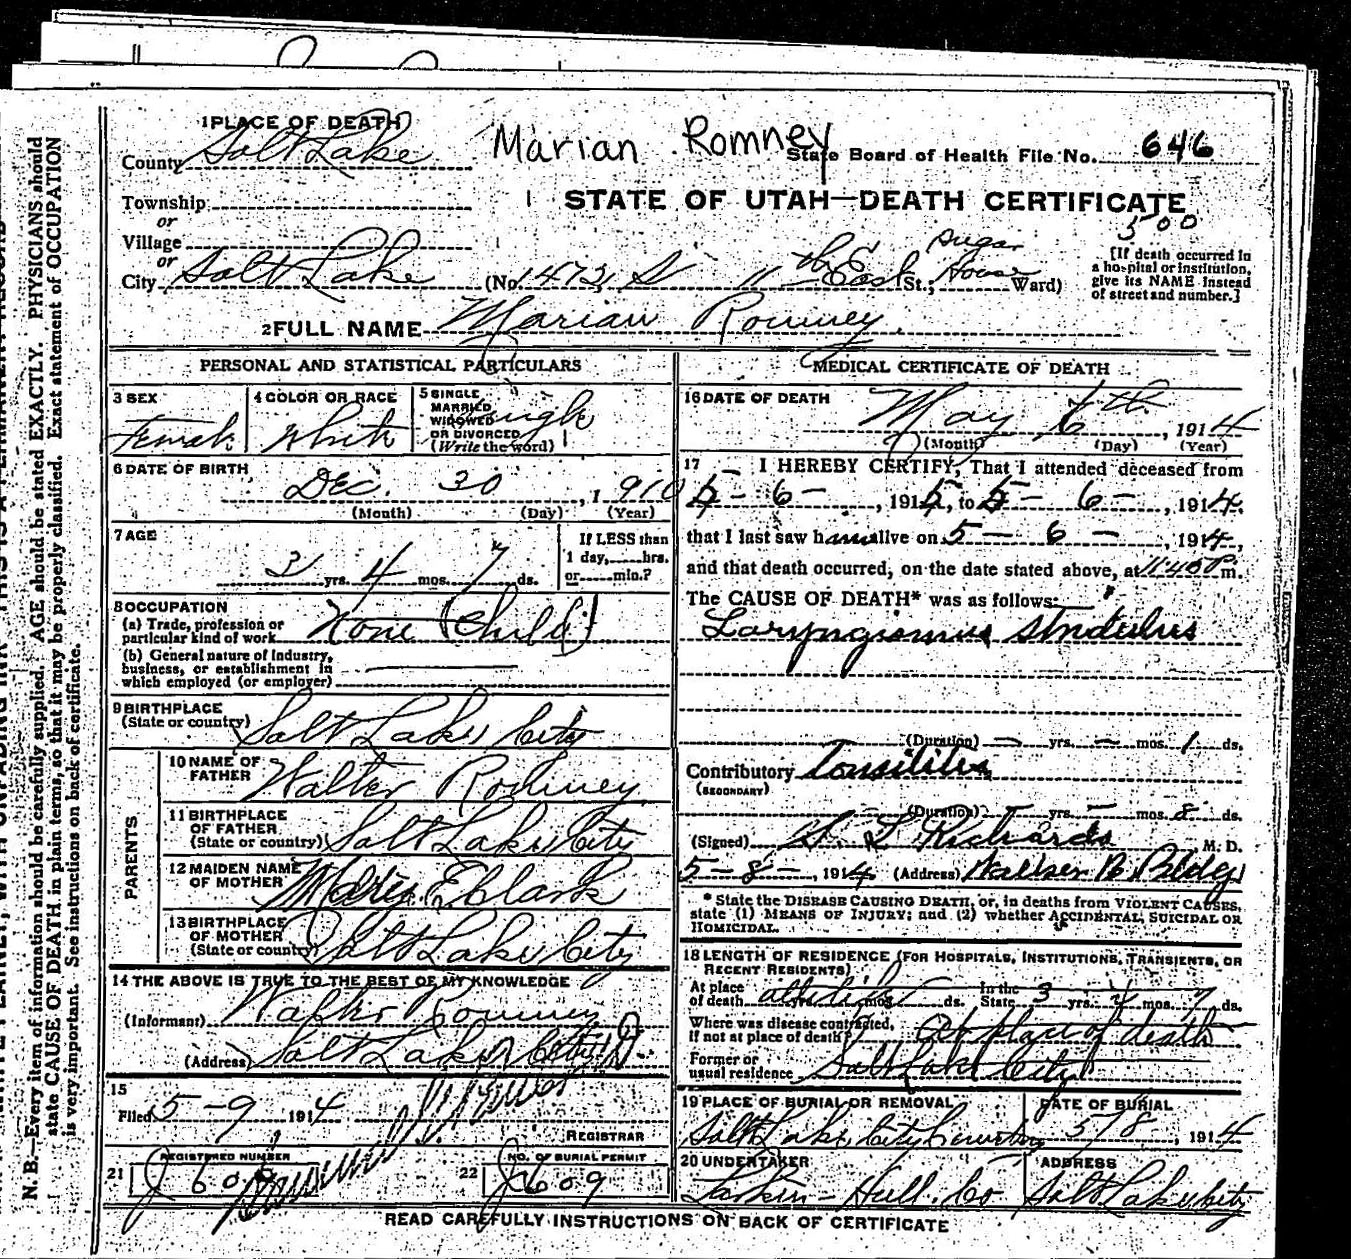 1 PLACE OF DEATH
County Salt Lake
Marian Romney
State Board of Health File No. 646
Township
or
Village
or
City Salt Lake
STATE OF UTAH—DEATH CERTIFICATE
500
(No. 1473 S 11th East St.; Sugar House Ward)
[If death occurred in
a hospital or institution,
give its NAME instead
of street and number.]
2 FULL NAME Marian Romney.
PERSONAL AND STATISTICAL PARTICULARS
3 SEX
Female
4 COLOR OR RACE
White
5 SINGLE
MARRIED
WIDOWED
OR DIVORCED
(Write the word)
Single
6 DATE OF BIRTH
Dec. 30, 1910
(Month) (Day) (Year)
7 AGE
3 yrs. 4 mos. 7 ds.
If LESS than
1 day, hrs.
or min.?
8 OCCUPATION
(a) Trade, profession or
particular kind of work None (Child)
(b) General nature of Industry,
business, or establishment in
which employed (or employer)
9 BIRTHPLACE
(State or country) Salt Lake City
PARENTS
10 NAME OF
FATHER Walter Romney
11 BIRTHPLACE
OF FATHER
(State or country) Salt Lake City
12 MAIDEN NAME
OF MOTHER
13 BIRTHPLACE
OF MOTHER
(State or country) Salt Lake City
14 THE ABOVE IS TRUE TO THE BEST OF MY KNOWLEDGE
(Informant) Walter Romney
(Address) Salt Lake City
15
Filed 5-9 1914
REGISTRAR
21 REGISTERED NUMBER
22 NO. OF BURIAL PERMIT
J609
MEDICAL CERTIFICATE OF DEATH
16 DATE OF DEATH
May 6th, 1914
(Month) (Day) (Year)
17 I HEREBY CERTIFY, That I attended deceased from
5-6-, 1914, to 5-6-, 1914,
that I last saw h alive on 5-6-, 1914,
and that death occurred, on the date stated above, at m.
The CAUSE OF DEATH* was as follows:
Laryngismus Stridulus
(Duration) - yrs. - mos. 1 ds.
Contributory Tonsilitis
(SECONDARY)
(Duration) - yrs. - mos. 8 ds.
(Signed) Richards M. D.
5-8-, 1914 (Address) Bldg
* State the DISEASE CAUSING DEATH, or, in deaths from VIOLENT CAUSES,
state (1) MEANS OF INJURY; and (2) whether ACCIDENTAL, SUICIDAL OR
HOMICIDAL.
18 LENGTH OF RESIDENCE (FOR HOSPITALS, INSTITUTIONS, TRANSIENTS, OR
RECENT RESIDENTS)
At place
of death all its life yrs. mos. ds. In the
State 3 yrs. 4 mos. 7 ds.
Where was disease contracted,
if not at place of death? At place of death
Former or
usual residence Salt Lake City
19 PLACE OF BURIAL OR REMOVAL
Salt Lake City Cemetery
DATE OF BURIAL
5/8, 1914
20 UNDERTAKER
Larkin-Hull Co
ADDRESS
Salt Lake City
READ CAREFULLY INSTRUCTIONS ON BACK OF CERTIFICATE
N. B.—Every item of information should be carefully supplied. AGE should be stated EXACTLY. PHYSICIANS should
state CAUSE OF DEATH in plain terms, so that it may be properly classified. Exact statement of OCCUPATION
is very important. See instructions on back of certificate.